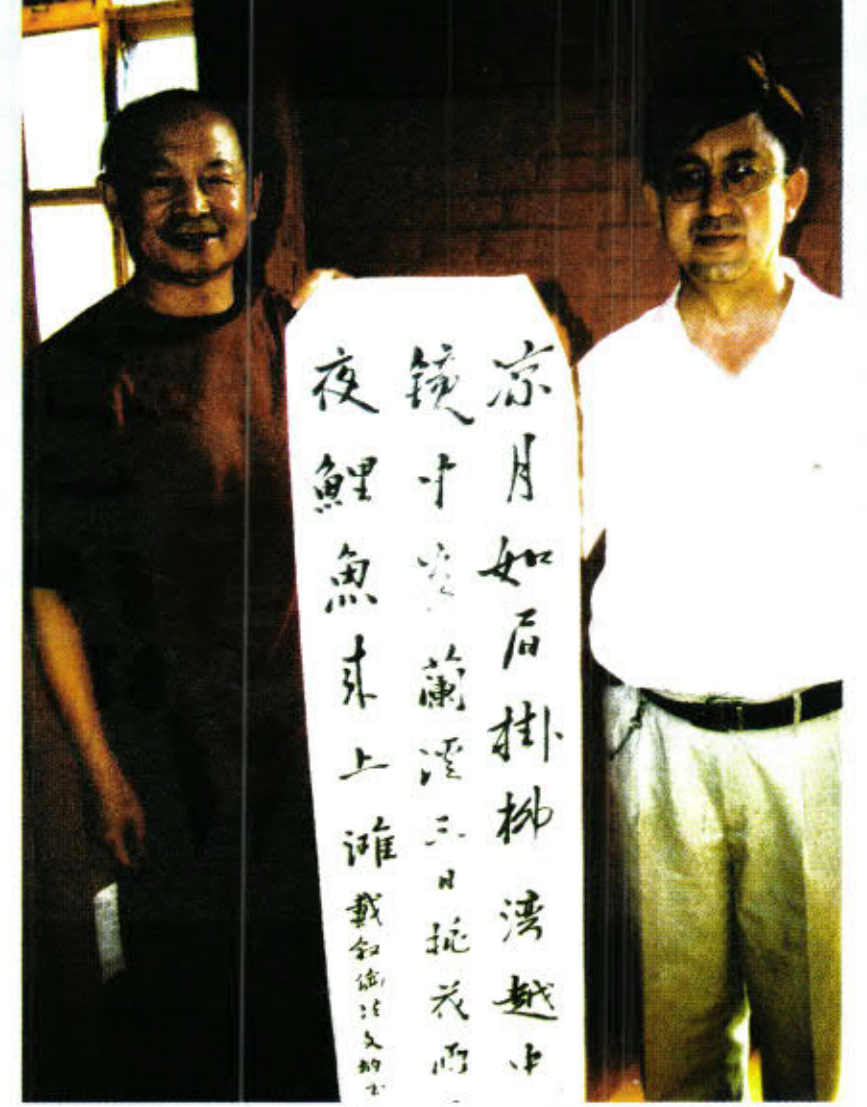 凉月如眉掛柳湾越中
镜中看蘭溪三日桃花雨
夜鯉魚来上灘戴叔倫诗文